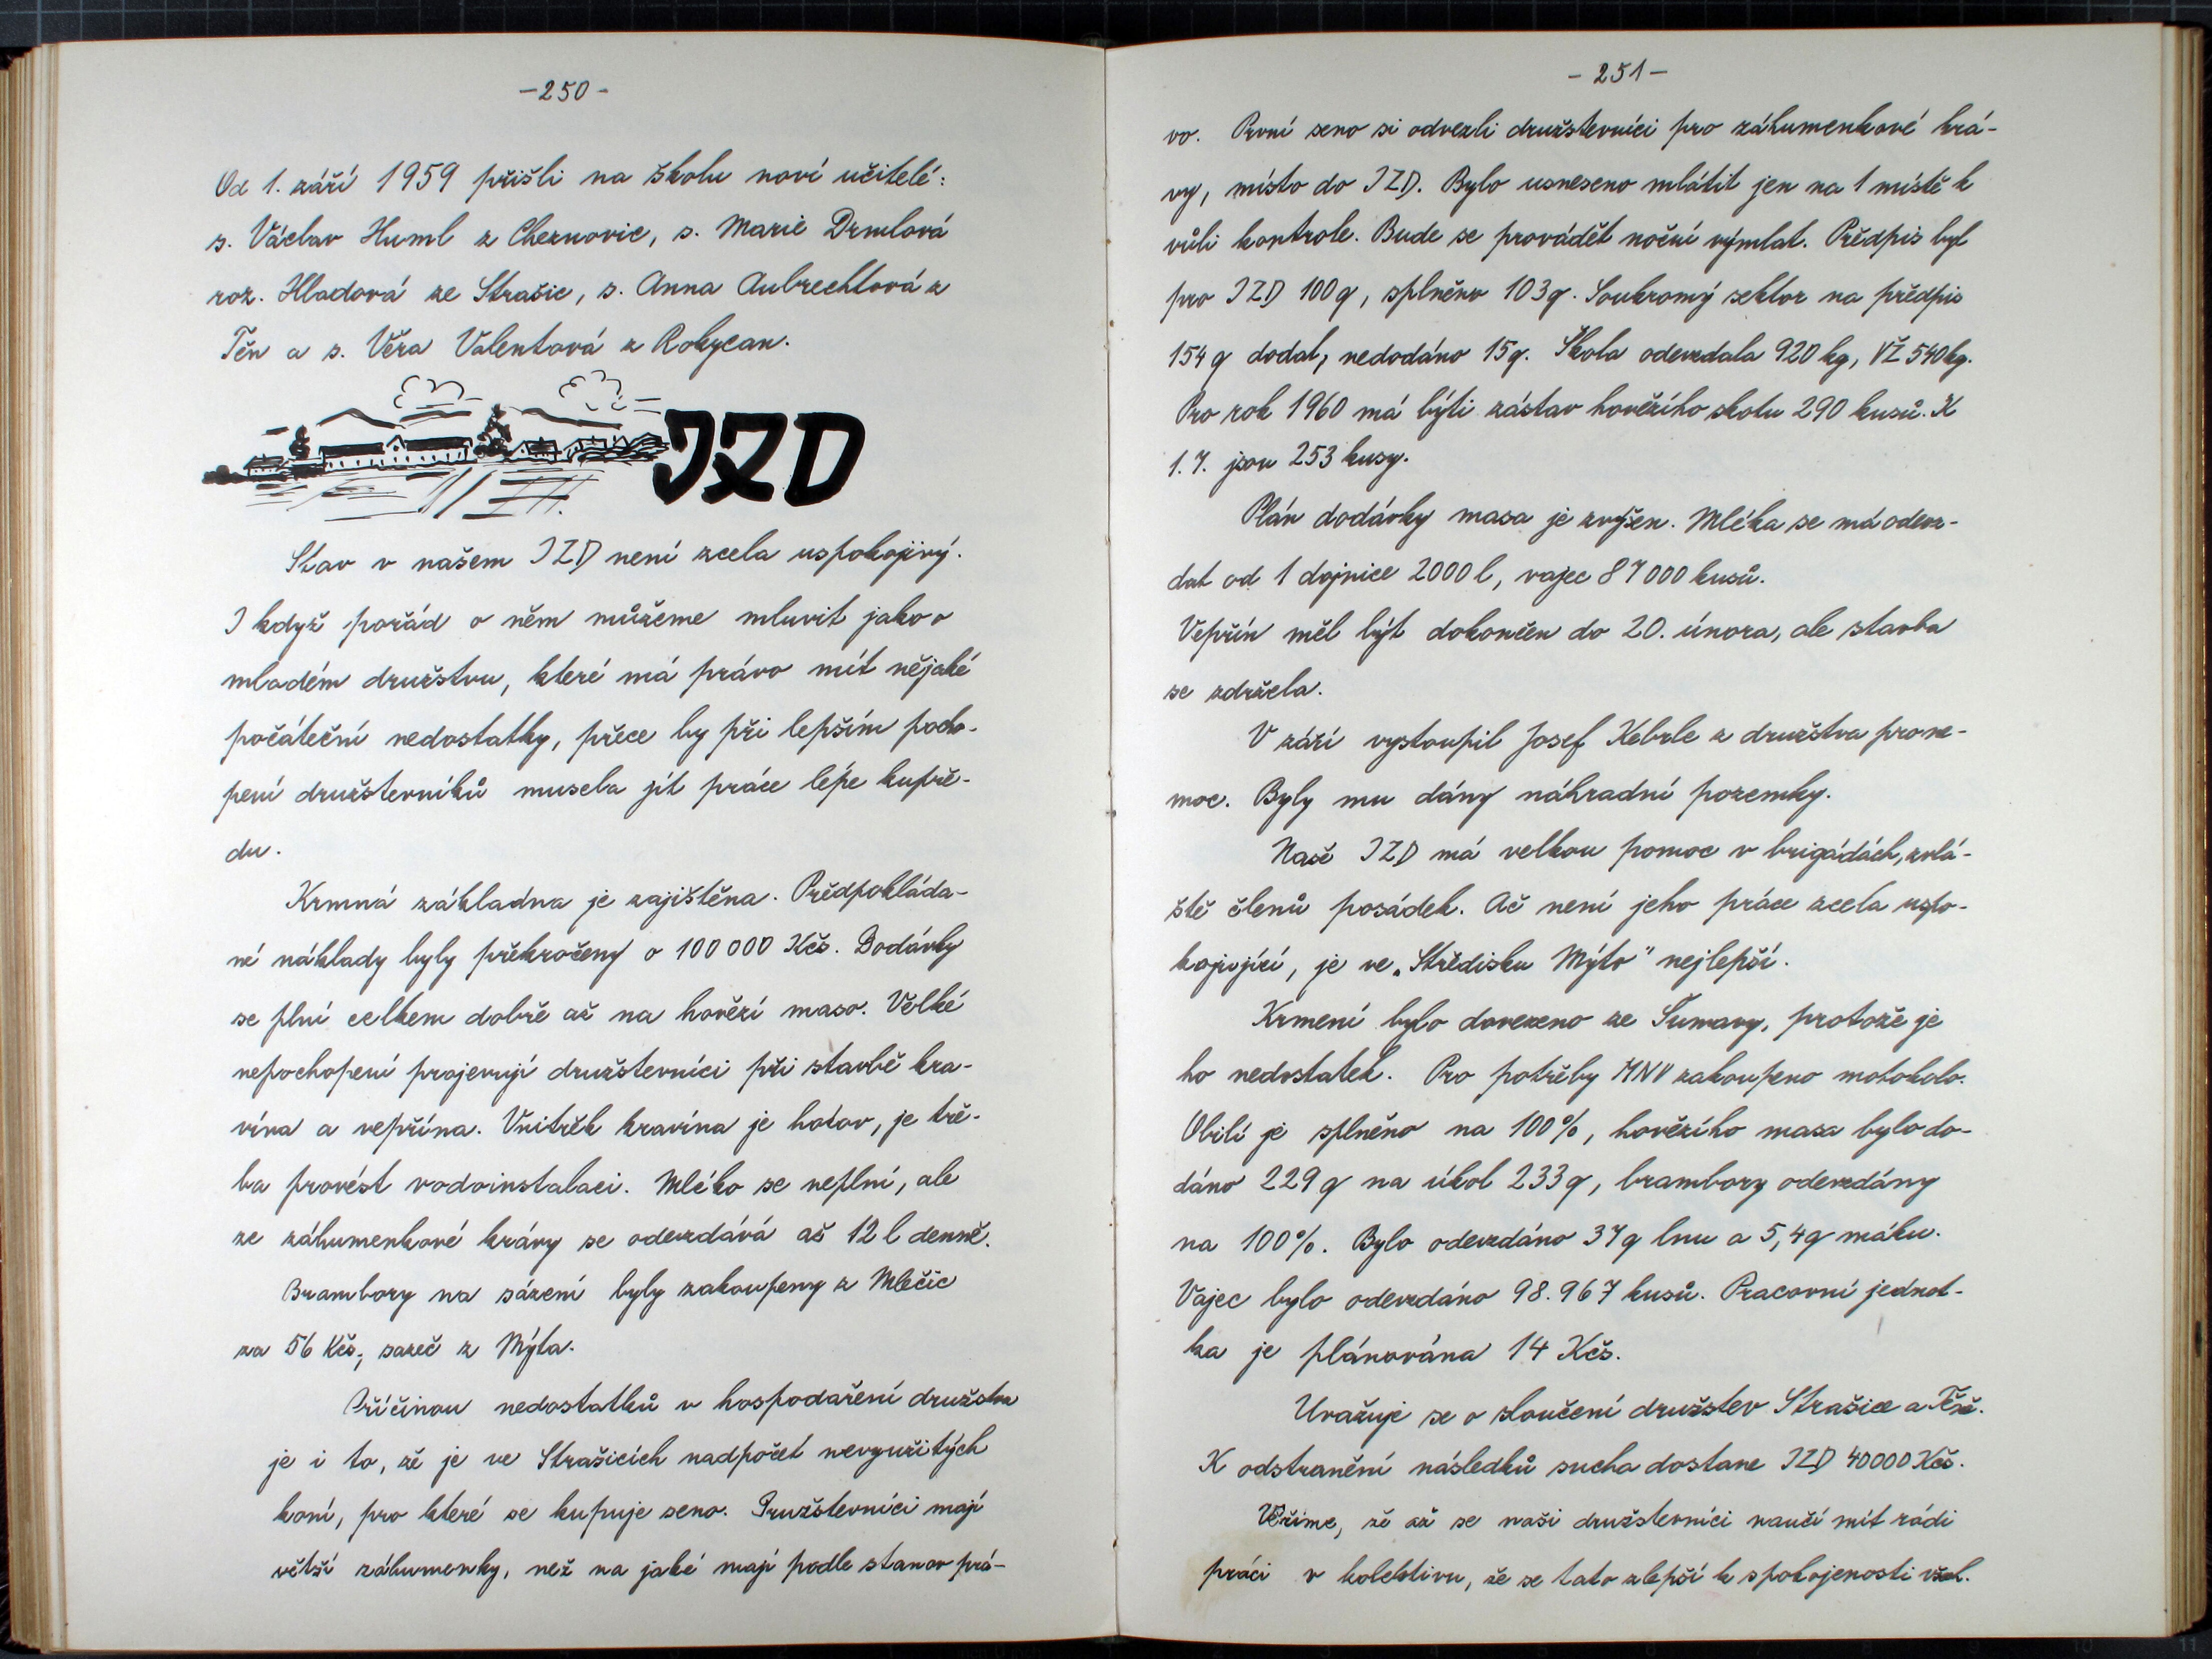 -250-
Od 1. září 1959 přišli na školu noví učitelé:
s. Václav Huml z Chernovic, s. Marie Drmlová
roz. Hladová ze Strašic, s. Anna Aubrechtová z
Těn a s. Věra Valentová z Rokycan.
JZD
Stav v našem JZD není zcela uspokojivý.
I když pořád o něm můžeme mluvit jako o
mladém družstvu, které má právo mít nějaké
počáteční nedostatky, přece by při lepším pocho-
pení družstevníků musela jít práce lépe kupře-
du.
Krmná základna je zajištěna. Předpokláda-
né náklady byly překročeny o 100 000 Kčs. Dodávky
se plní celkem dobře až na hovězí maso. Velké
nepochopení projevují družstevníci při stavbě kra-
vína a vepřína. Vnitřek kravína je hotov, je tře-
ba provést vodoinstalaci. Mléko se neplní, ale
ze záhumenkové krávy se odevzdává až 12 l denně.
Brambory na sázení byly zakoupeny z Mlečic
za 56 Kčs, sazeč z Mýta.
Příčinou nedostatků v hospodaření družstva
je i to, že je ve Strašicích nadpočet nevyužitých
koní, pro které se kupuje seno. Družstevníci mají
větší záhumenky, než na jaké mají podle stanov prá-
-251-
vo. První seno si odvezli družstevníci pro záhumenkové krá-
vy, místo do JZD. Bylo usneseno mlátit jen na 1 místě k
vůli kontrole. Bude se provádět noční výmlat. Předpis byl
pro JZD 100 q, splněno 103 q. Soukromý sektor na předpis
154 q dodal, nedodáno 15 q. Škola odevzdala 920 kg, VŽ 540 kg.
Pro rok 1960 má býti zástav hovězího skotu 290 kusů. K
1. 7. jsou 253 kusy.
Plán dodávky masa je zvýšen. Mléka se má odevz-
dat od 1 dojnice 2000 l, vajec 87 000 kusů.
Vepřín měl být dokončen do 20. února, ale stavba
se zdržela.
V září vystoupil Josef Kebrle z družstva pro ne-
moc. Byly mu dány náhradní pozemky.
Naše JZD má velkou pomoc v brigádách, zvlá-
ště členů posádek. Ač není jeho práce zcela uspo-
kojující, je ve „Středisku Mýto" nejlepší.
Krmení bylo dovezeno ze Šumavy, protože je
ho nedostatek. Pro potřeby MNV zakoupeno motokolo.
Obilí je splněno na 100%, hovězího masa bylo do-
dáno 229 q na úkol 233 q, brambory odevzdány
na 100%. Bylo odevzdáno 37 q lnu a 5,4 q máku.
Vajec bylo odevzdáno 98.967 kusů. Pracovní jednot-
ka je plánována 14 Kčs.
Uvažuje se o sloučení družstev Strašice a Těně.
K odstranění následků sucha dostane JZD 40000 Kčs.
Věříme, že až se naši družstevníci naučí mít rádi
práci v kolektivu, že se tato zlepší k spokojenosti všech.